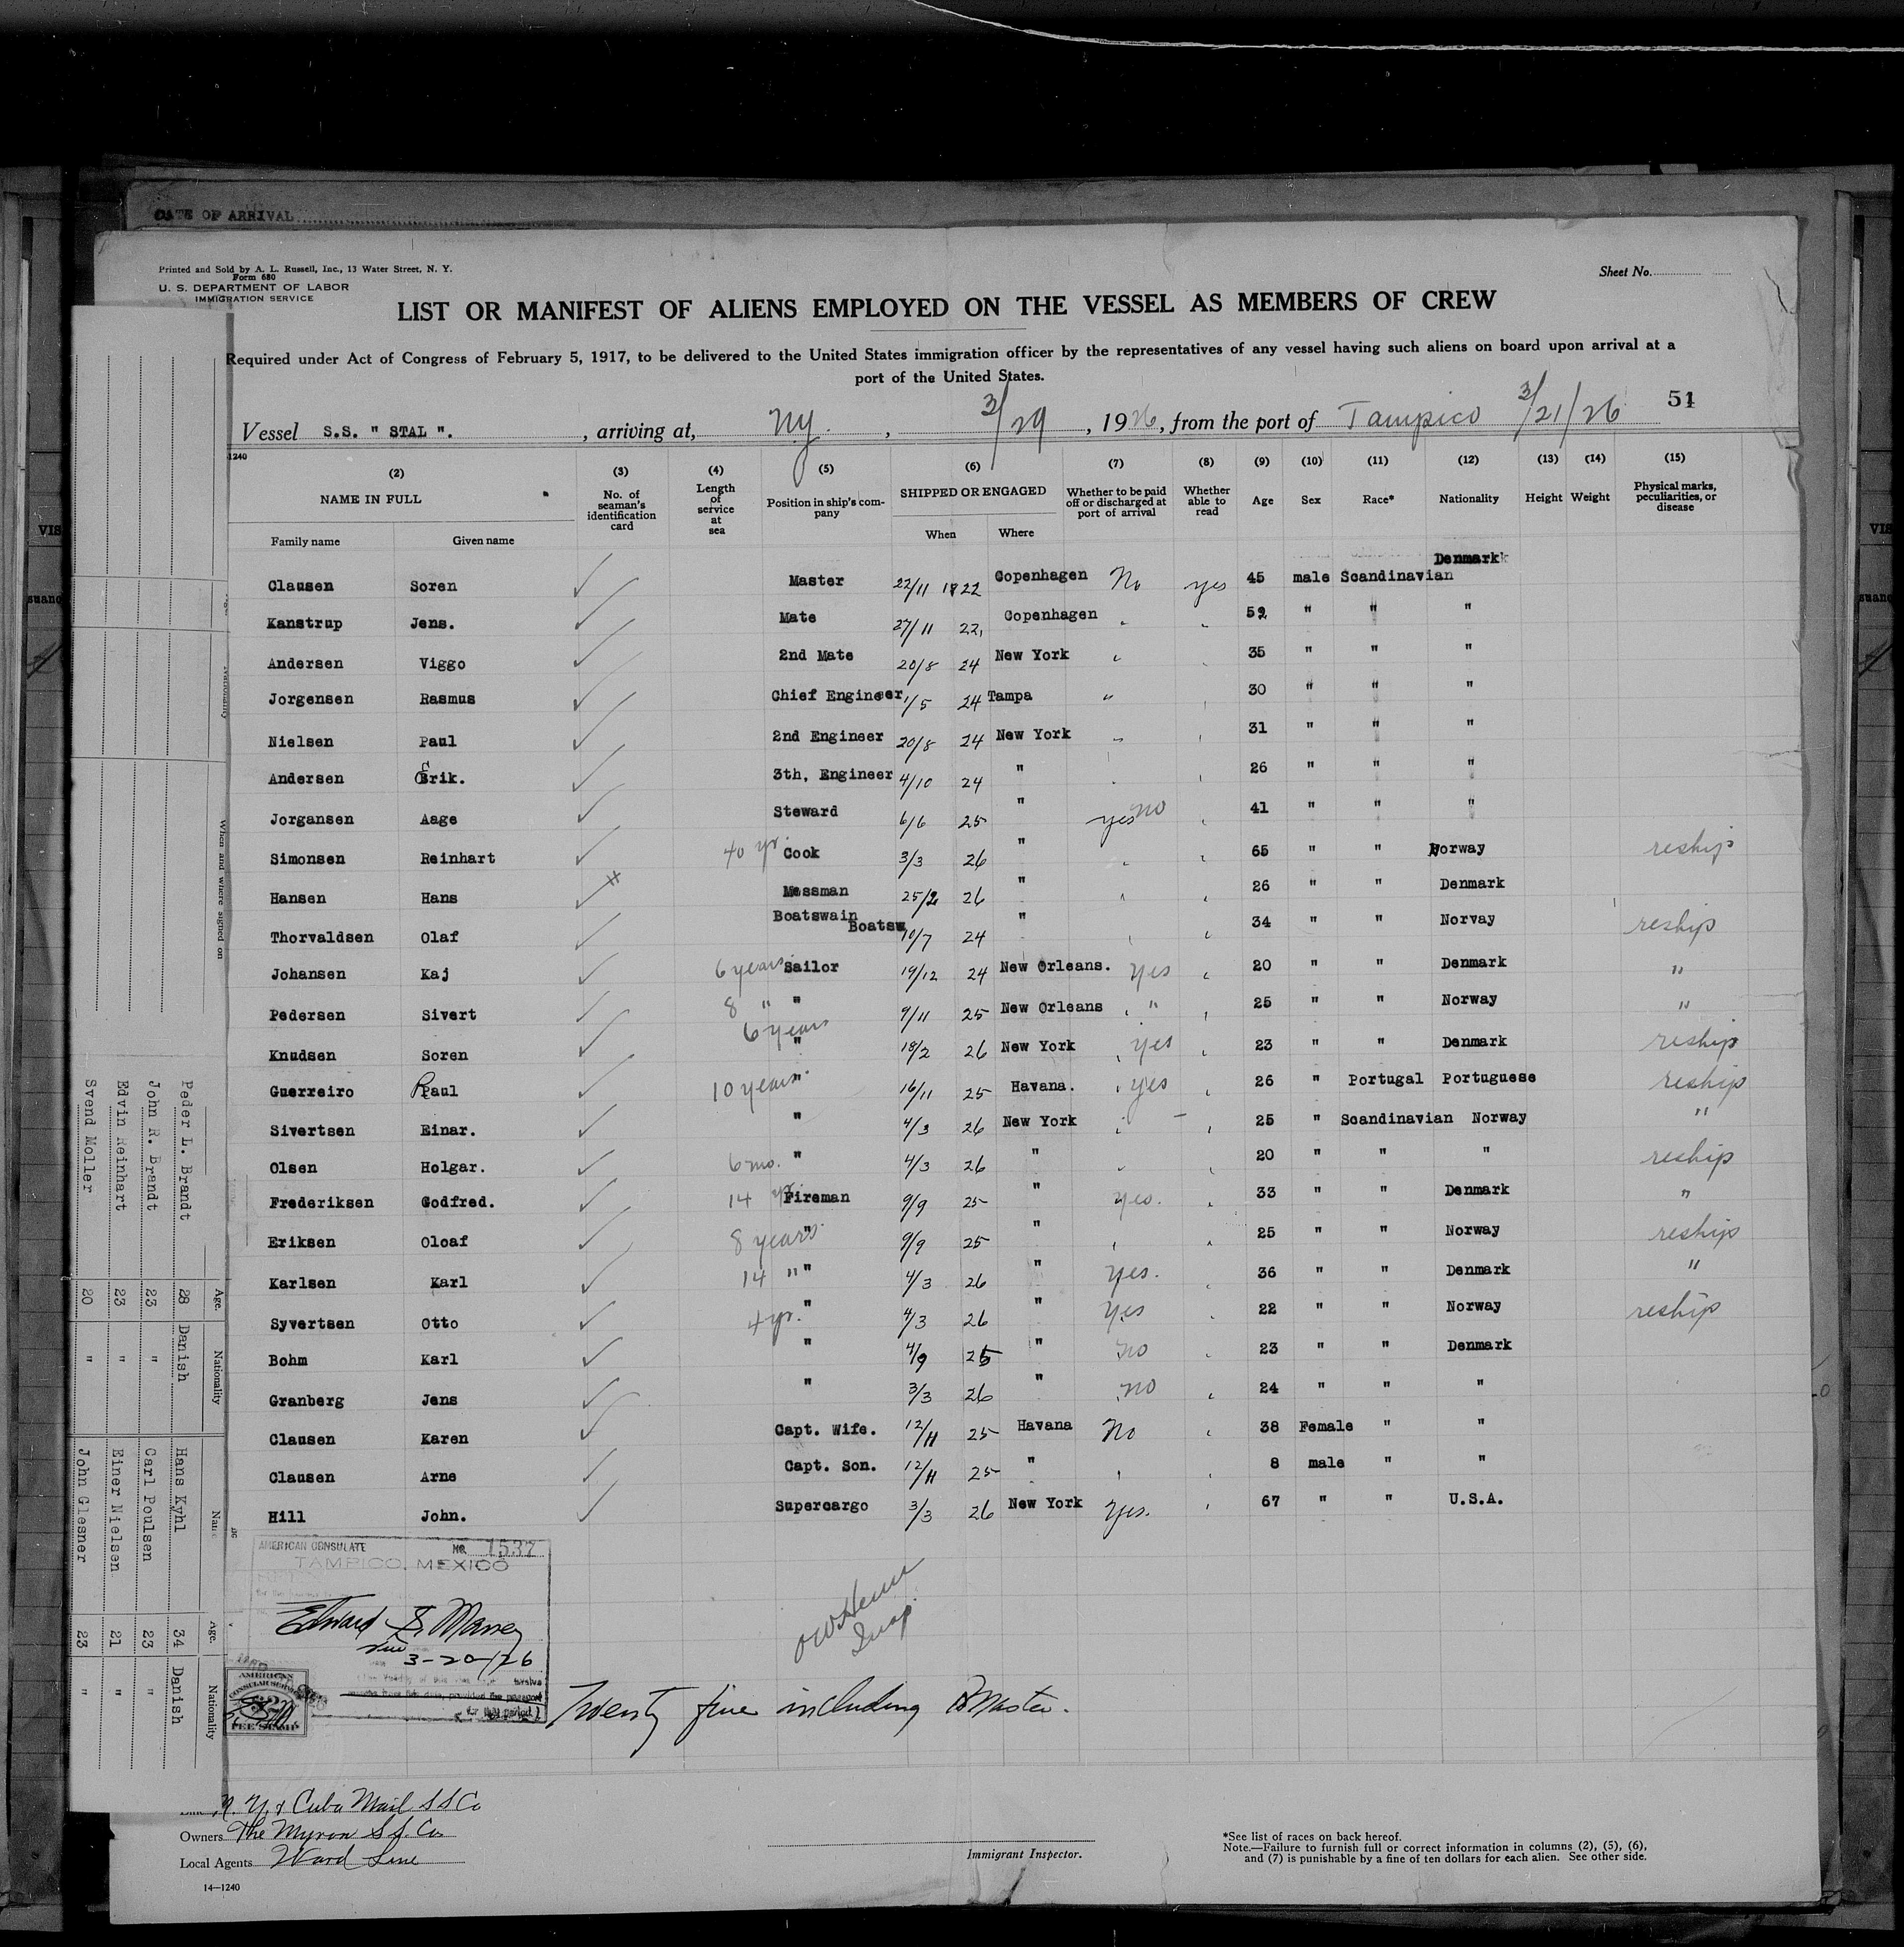 DATE OF ARRIVAL
Printed and Sold by A. L. Russell, Inc., 13 Water Street, N. Y.
Form 680
U. S. DEPARTMENT OF LABOR
IMMIGRATION SERVICE
Sheet No.
LIST OR MANIFEST OF ALIENS EMPLOYED ON THE VESSEL AS MEMBERS OF CREW
Required under Act of Congress of February 5, 1917, to be delivered to the United States immigration officer by the representatives of any vessel having such aliens on board upon arrival at a
port of the United States.
51
Vessel S.S. " STAL ". , arriving at, Ny. , 3/29 , 1926, from the port of Tampico 3/21/26
1240
(2) (3) (4) (5) (6) (7) (8) (9) (10) (11) (12) (13) (14) (15)
NAME IN FULL No. of seaman's identification card Length of service at sea Position in ship's company SHIPPED OR ENGAGED Whether to be paid off or discharged at port of arrival Whether able to read Age Sex Race* Nationality Height Weight Physical marks, peculiarities, or disease
Family name Given name When Where
Denmark
Clausen Soren Master 22/11 1922 Copenhagen No yes 45 male Scandinavian
Kanstrup Jens. Mate 27/11 22, Copenhagen " " 52 " " "
Andersen Viggo 2nd Mate 20/8 24 New York " 35 " " "
Jorgensen Rasmus Chief Engineer 1/5 24 Tampa " 30 " " "
Nielsen Paul 2nd Engineer 20/8 24 New York " 31 " " "
Andersen Erik. 3th, Engineer 4/10 24 " 26 " " "
Jorgansen Aage Steward 6/6 25 " yes no 41 " " "
Simonsen Reinhart 40 yr. Cook 3/3 26 " 65 " " Norway reship
Hansen Hans Messman 25/2 26 " 26 " " Denmark
Thorvaldsen Olaf Boatswain Boatsw 10/7 24 " 34 " " Norvay reship
Johansen Kaj 6 years Sailor 19/12 24 New Orleans. yes 20 " " Denmark "
Pedersen Sivert 8 " " 9/11 25 New Orleans " 25 " " Norway "
Knudsen Soren 6 years " 18/2 26 New York yes 23 " " Denmark reship
Guerreiro Paul 10 years " 16/11 25 Havana. yes 26 " Portugal Portuguese reship
Sivertsen Einar. " 4/3 26 New York 25 " Scandinavian Norway "
Olsen Holgar. 6 mo. " 4/3 26 " 20 " " " reship
Frederiksen Godfred. 14 yr. Fireman 9/9 25 " yes. 33 " " Denmark "
Eriksen Oloaf 8 years " 9/9 25 " 25 " " Norway reship
Karlsen Karl 14 " " 4/3 26 " Yes. 36 " " Denmark "
Syvertsen Otto 4 yr. " 4/3 26 " Yes 22 " " Norway reship
Bohm Karl " 4/9 25 " no 23 " " Denmark
Granberg Jens " 3/3 26 " no 24 " " "
Clausen Karen Capt. Wife. 12/11 25 Havana No 38 Female " "
Clausen Arne Capt. Son. 12/11 25 " 8 male " "
Hill John. Supercargo 3/3 26 New York Yes. 67 " " U.S.A.
AMERICAN CONSULATE NO. 1537
TAMPICO, MEXICO
Edward
3-20-/26
AMERICAN
CONSULAR SERVICE
FEE STAMP
Insp.
Twenty five including Master.
N. Y. & Cuba Mail SS Co
Owners The Myron S.S. Co.
Local Agents Ward Line
14—1240
Immigrant Inspector.
*See list of races on back hereof.
Note.—Failure to furnish full or correct information in columns (2), (5), (6),
and (7) is punishable by a fine of ten dollars for each alien. See other side.
When and where signed on
Age. Nationality Name Age. Nationality
Peder L. Brandt 28 Danish Hans Kyhl 34 Danish
John R. Brandt 23 " Carl Poulsen 23 "
Edvin Reinhart 23 " Einer Nielsen 21 "
Svend Moller 20 " John Glesner 23 "